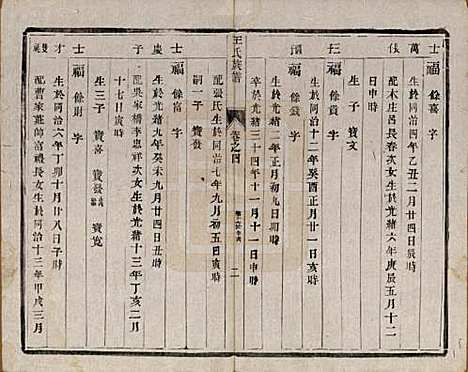 士福 餘喜 字
生於同治四年乙丑二月廿四日戌時
配木庄呂長春次女生於光緒六年庚辰五月十二
日申時
生子 寶文
餘貢 字
生於同治十二年癸酉正月廿一日亥時
餘 字
生於光緒二年正月初九日寅時
卒於光緒三十四年十一月十一日申時
王氏族譜
卷之四
一
配張氏生於同治七年九月初五日亥時
嗣一子 寶發
士福 餘富 字
生於光緒九年癸未九月廿四日寅時
配吳家橋李忠祥次女生於光緒十三年丁亥二月
十七日寅時
生三子 寶喜 寶發 寶寬
士福 餘財 字
生於同治六年丁卯十月廿八日子時
配曹家莊帥富禮長女生於同治十三年甲戌三月